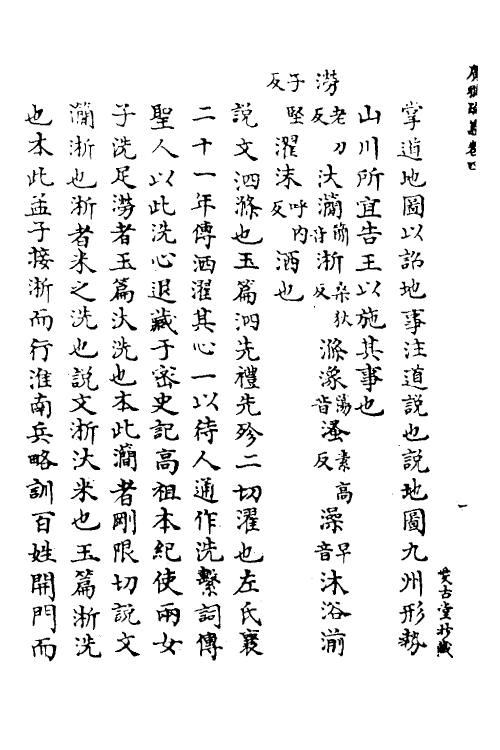 廣雅疏義卷四
掌道地圖以詔地事注道說也說地圖九州形勢
山川所宜告王以施其事也
澇老刀反汏灡簡音淅桑狄反滌潒蕩音溞素高反澡早音沐浴湔
子堅反濯沬呼內反洒也
說文洒滌也玉篇洒先禮先殄二切濯也左氏襄
二十一年傳洒濯其心一以待人通作洗繫詞傳
聖人以此洗心退藏于密史記高祖本紀使兩女
子洗足澇者玉篇汏洗也本此灡者剛限切說文
灡淅也淅者米之洗也說文淅汏米也玉篇淅洗
也本此孟子接淅而行淮南兵略訓百姓開門而
一
古堂抄藏